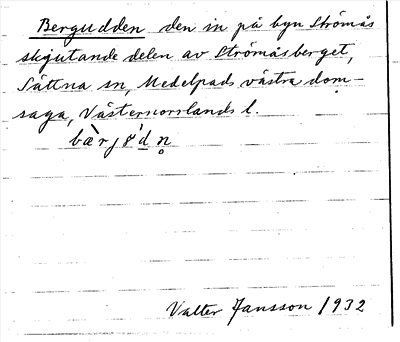 Bergudden den in på byn Strömås
skjutande delen av Strömåsberget,
Sättna sn, Medelpads västra dom-
saga, Västernorrlands l.
Valter Jansson 1932